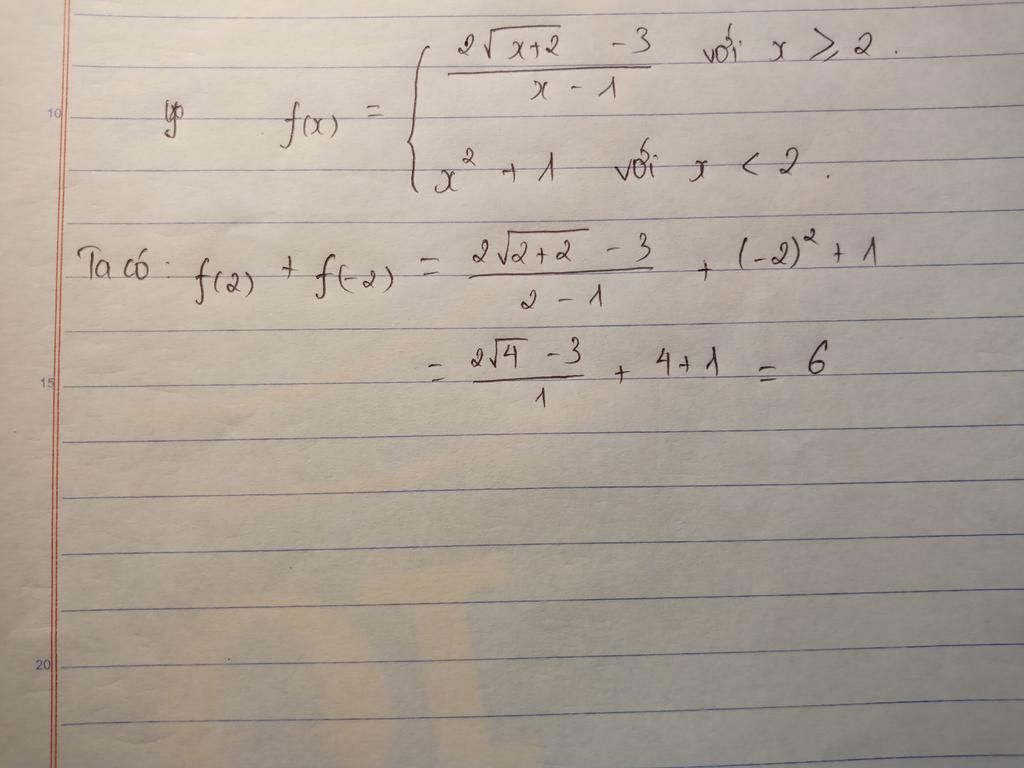 10
f(x) = { (2√(x+2) - 3)/(x - 1) với x ≥ 2.
x² + 1 với x < 2.
Ta có: f(2) + f(-2) = (2√(2+2) - 3)/(2 - 1) + (-2)² + 1
15 = (2√4 - 3)/1 + 4+1 = 6
20